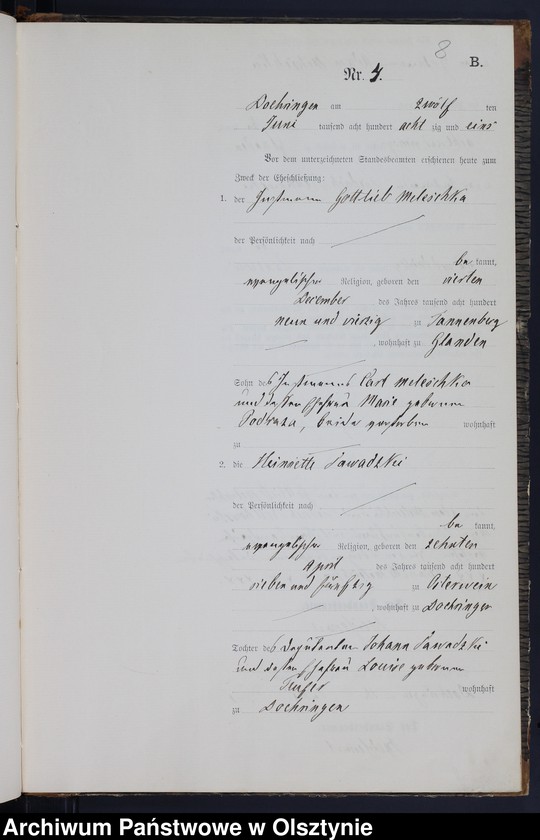 8
B.
Nr. 4.
Doehringen am zwölf ten
Juni tausend acht hundert acht zig und eins
Vor dem unterzeichneten Standesbeamten erschienen heute zum
Zweck der Eheschließung:
1. der Instmann Gottlieb Meleschka
der Persönlichkeit nach
be kannt,
evangelischer Religion, geboren den vierten
Dezember des Jahres tausend acht hundert
neun und vierzig zu Tannenberg
, wohnhaft zu Glanden
Sohn des Instmanns Carl Meleschka
und dessen Ehefrau Marie geborenen
Podraza, beide verstorben wohnhaft
zu
2. die Henriette Sawadzki
der Persönlichkeit nach
be kannt,
evangelischer Religion, geboren den zehnten
April des Jahres tausend acht hundert
sieben und fünfzig zu Osterwein
, wohnhaft zu Doehringen
Tochter des Deputanten Johann Sawadzki
und dessen Ehefrau Louise geborenen
wohnhaft
zu Doehringen
Archiwum Państwowe w Olsztynie